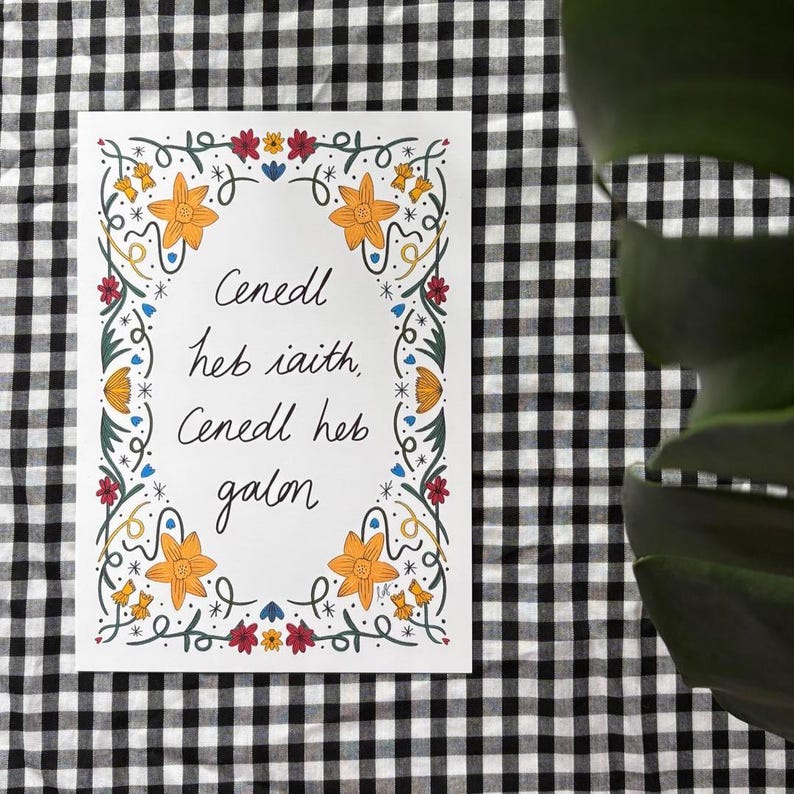 Cenedl
heb iaith,
Cenedl heb
galon